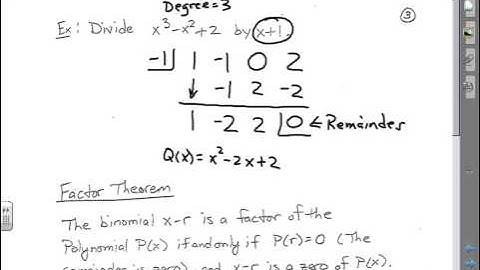 Degree=3
③
Ex: Divide x³-x²+2 by x+1.
-1| 1 -1 0 2
↓ -1 2 -2
1 -2 2 |0 ← Remainder
Q(x)=x²-2x+2
Factor Theorem
The binomial x-r is a factor of the
Polynomial P(x) if and only if P(r)=0 (The
remainder is zero) and x-r is a zero of P(x).